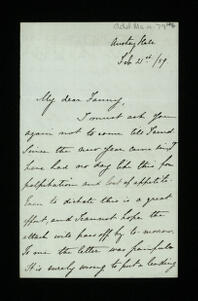 Anstey Vale
Feb 21st /79
My dear Fanny,
I must ask you
again not to come till I send
Since the new year came in I
have had no day like this for
palpitation and lost of appetite.
Even to dictate this is a great
effort, and I cannot hope the
attack will pass off by to morrow.
To me the letter was painful
It is surely wrong to put a leading